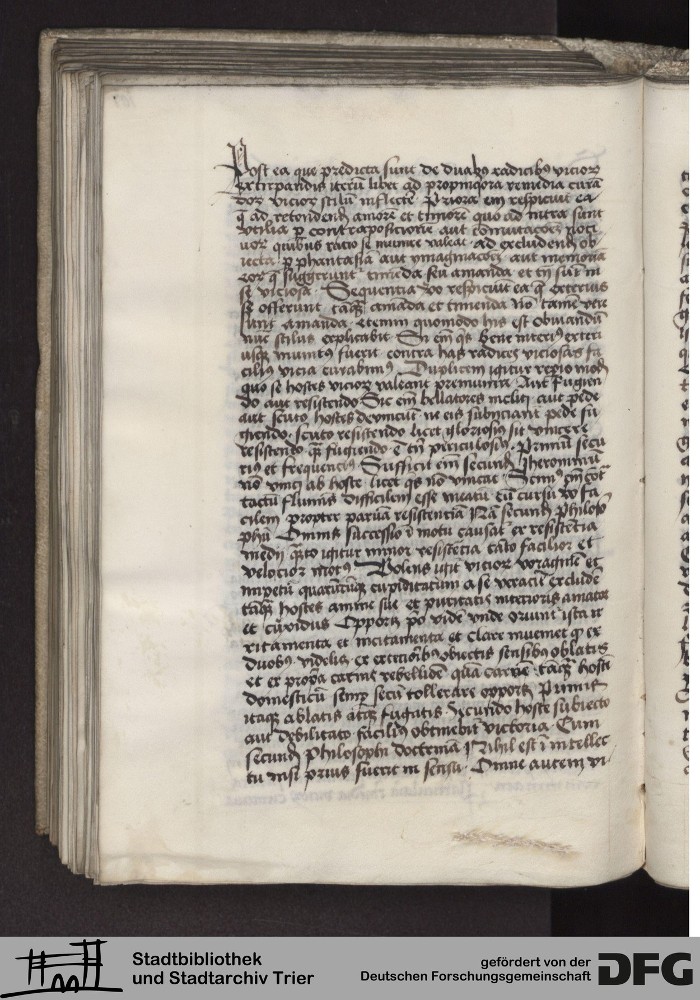 Post ea que predicta sunt de duabꝰ radicibꝰ vicioꝝ
extirpandis iterū liber ad propinqiora remedia curā
doꝝ vicioꝝ stilū inflecte Priora em̄ respiciūt ea
q̄ ad retondend amorē et timorē quo ad intra sunt
vtilia ꝑ contrapositionē aut cōmutacōeꝫ
quibꝰ racio se munire valeat ad excludend ob
iecta ꝑ phantasiā aut ymaginacōeꝫ aut memoria
q̄ suggerunt timēda seu amanda et tn̄ sūt in
se viciosa Sequentia v̓o respiciūt ea q̄ exterius
se offerunt tāqꝫ amāda et timenda nō tamē vere
sunt amanda Etenim quomodo his est obuiandū
nūc stilus explicabit Si em̄ qs bene interiꝰ exteri
usqꝫ munitꝰ fuerit contra has radices viciosas fa
ciliꝰ vicia curabimꝰ Duplicem igitur reperio modū
quo se hostes vicioꝝ valeant premunire Aut fugien
do aut resistendo Sic em̄ bellatores incliti aut pede
aut scuto hostes deuincūt ut eis subiiciant pede fu
giendo scuto resistendo licet gloriosiꝰ sit vincere
resistendo qͣꝫ fugiendo ē tn̄ periculosiꝰ Primū secu
riꝰ et frequenciꝰ Sufficit em̄ secund Iheronimū
nō vinci ab hoste licet qs nō vincat
tactū fluminis difficilem esse meatū cū cursū v̓o fa
cilem propter paruā resistentiā Nā secund Philoso
phū Omnis successio ī motu causat̄ ex resistētia
medij qͣnto igitur minor resistēcia tāto facilior et
velocior motꝰ Volens igit̄ vicioꝝ voraginē et
impetū quarūcūqꝫ cupiditatum a se veraciter excludē
tāqꝫ hostes anime sue et puritatis interioris amator
et cupidus Opportꝫ pͦ vidē vnde oriunt̄ ista ir
ritamenta et incitamenta et clare inueniet qꝫ ex
duobꝰ videlicꝫ ex exterioribꝰ obiectis sensibꝰ oblatis
et ex propria carnis rebellione quā carnē tāqͣꝫ hostē
domesticū semꝑ secū tollerare opportꝫ Primis
itaqꝫ ablatis atqꝫ fugatis Secundo hoste subiecto
aut debilitato faciliꝰ obtinebit̄ victoria Cum
secund Philosophi doctrinā Nihil est ī intellec
tu nisi prius fuerit in sensu Omne autem vi
Stadtbibliothek
und Stadtarchiv Trier
gefördert von der
Deutschen Forschungsgemeinschaft
DFG